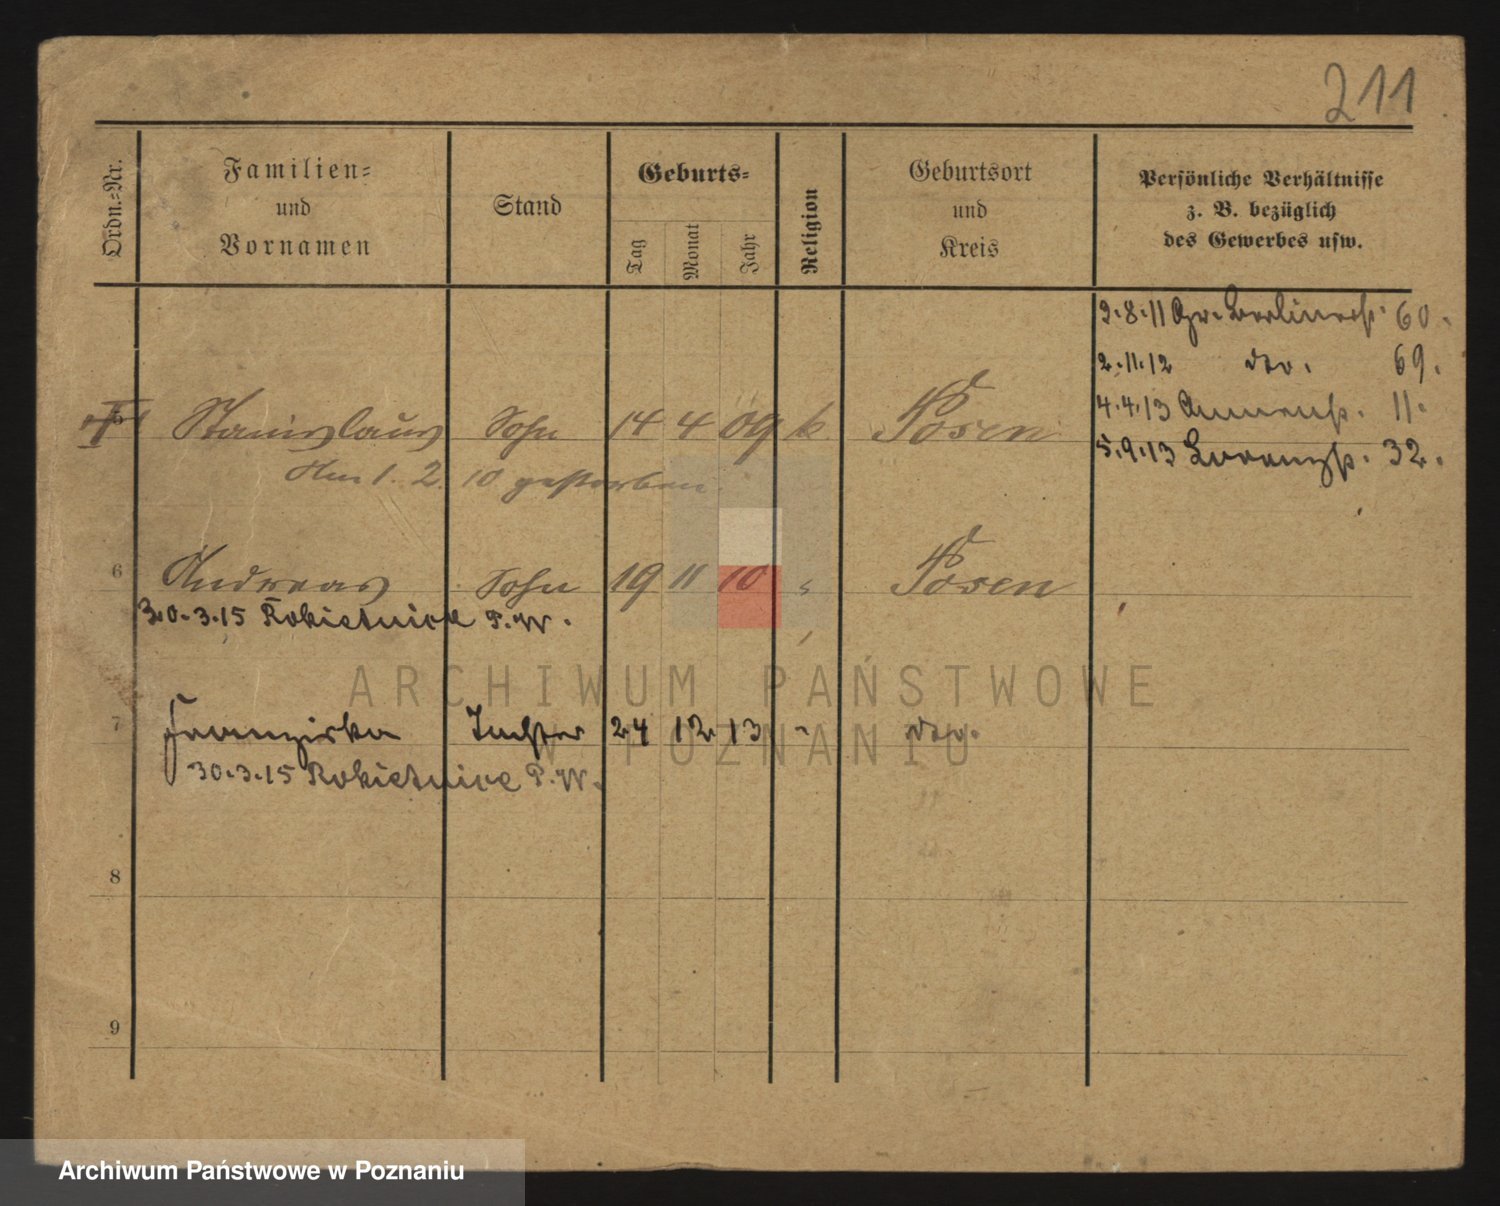 211
Ordn.-Nr.
Familien-
und
Vornamen
Stand
Geburts-
Tag Monat Jahr
Religion
Geburtsort
und
Kreis
Persönliche Verhältnisse
z. B. bezüglich
des Gewerbes usw.
2.8.11 Gr. Berlinerstr. 60.
2.11.12 do. 69.
4.4.13 Annenstr. 11.
5.9.13 32.
5 Stanislaus Sohn 14 4 09 k. Posen
Am 1. 2. 10 gestorben.
6 Andreas Sohn 19 11 10 " Posen
30.3.15 Rokietnice P.W.
7 Franziska Tochter 24 12 13 " do.
30.3.15 Rokietnice P.W.
8
9
ARCHIWUM PAŃSTWOWE
W POZNANIU
Archiwum Państwowe w Poznaniu